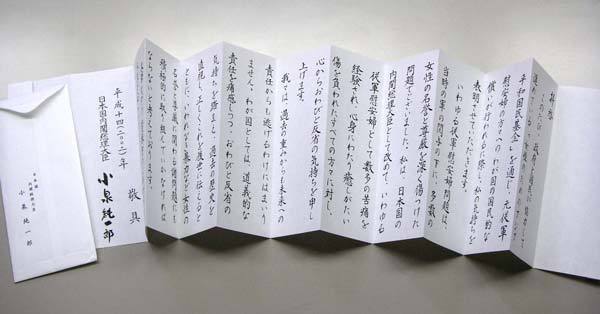 拝啓
このたび、政府と国民が協力して
進めている「女性のためのアジア
平和国民基金」を通じ、元従軍
慰安婦の方々へのわが国の国民的な
償いが行われるに際し、私の気持ちを
表明させていただきます。
いわゆる従軍慰安婦問題は、
当時の軍の関与の下に、多数の
女性の名誉と尊厳を深く傷つけた
問題でございました。私は、日本国の
内閣総理大臣として改めて、いわゆる
従軍慰安婦として数多の苦痛を
経験され、心身にわたり癒しがたい
傷を負われたすべての方々に対し、
心からおわびと反省の気持ちを申し
上げます。
我々は、過去の重みからも未来への
責任からも逃げるわけにはまいり
ません。わが国としては、道義的な
責任を痛感しつつ、おわびと反省の
気持ちを踏まえ、過去の歴史を
直視し、正しくこれを後世に伝えると
ともに、いわれなき暴力など女性の
名誉と尊厳に関わる諸問題にも
積極的に取り組んでいかなければ
ならないと考えております。
敬具
平成十四(二〇〇二)年
日本国内閣総理大臣
小泉純一郎
小泉純一郎